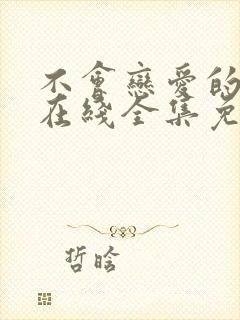 不會戀愛的
在綫全集免
哲晗